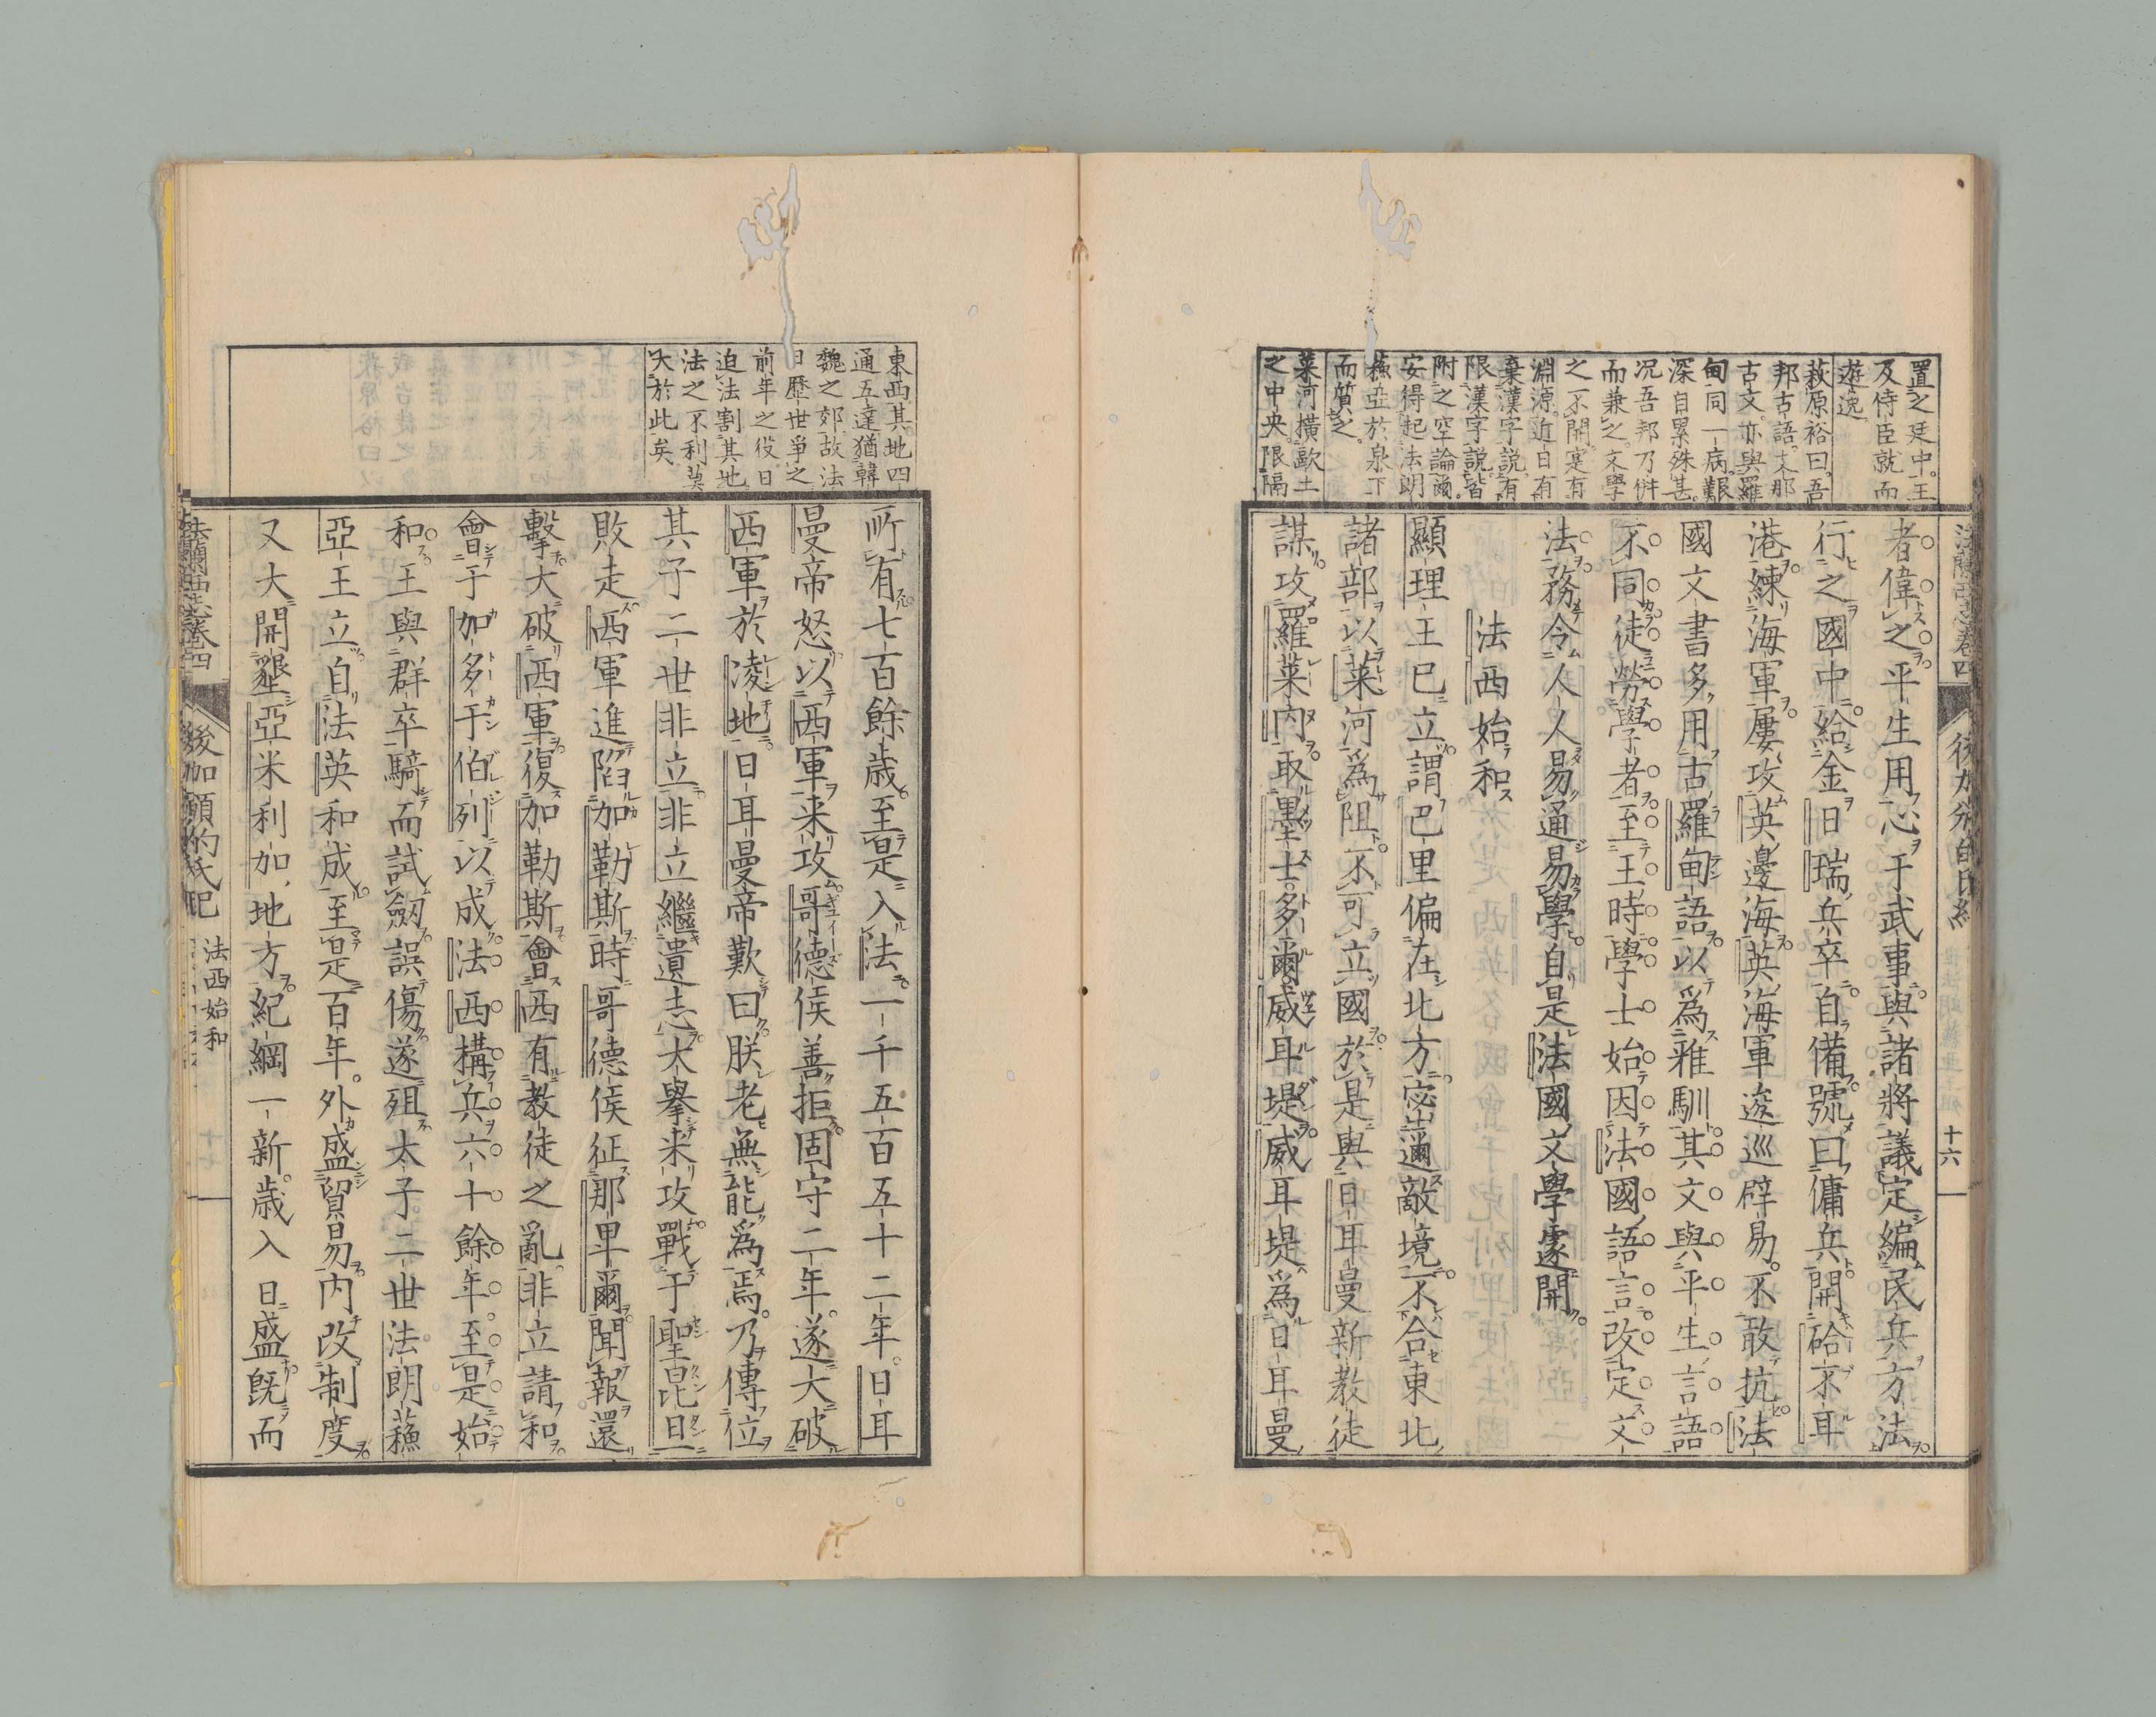 置之廷中。王
及侍臣就而
遊逸
萩原裕曰。吾
邦古語。太那
古文。亦與羅
甸同一病。艱
深自累殊甚。
况吾邦乃倂
而兼之。文學
之不開。寔有
淵源。近日有
棄漢字説。有
限漢字説。皆
附之空論爾。
安得起法朗
蘓亞於泉下
而質之。
萊河橫歐土
之中央。限隔
法蘭西志卷四
十六
者偉之平生用心于武事與諸將議定編民兵方法
行之國中給金日瑞兵卒自備號曰傭兵開硆不耳
港練海軍屢攻英邊海英海軍逡巡辟易。不敢抗法
國文書多用古羅甸語以爲雅馴其文與平生言語
不同徒勞學者至王時學士始因法國語言改定文
法務令人人易通易學自是法國文學遂開
法西始和
顯理王已立謂巴里偏在北方密邇敵境不合東北
諸部以萊河爲阻不可立國於是與日耳曼新教徒
謀攻羅萊內取墨士多爾威耳堤威耳堤爲日耳曼
東西其地四
通五達猶韓
魏之郊故法
日歷世爭之
前年之役日
迫法割其地
法之不利莫
大於此矣
所有七百餘歲至是入法一千五百五十二年。日耳
曼帝怒以西軍來攻哥德侯善拒固守二年。遂大破
西軍於凌地日耳曼帝歎曰朕老無能爲焉。乃傳位
其子二世非立非立繼遺志大擧來攻戰于聖昆日
敗走西軍進陷加勒斯時哥德侯征那卑爾聞報還
擊大破西軍復加勒斯會西有教徒之亂非立請和
會于加多干伯列以成法西構兵六十餘年。至是始
和王與群卒騎而試劔誤傷遂殂太子二世法朗蘓
亞王立自法英和成至是百年。外盛貿易內改制度
又大開墾亞米利加地方紀綱一新。歲入日盛旣而
法蘭西志卷四
法西始和
十七